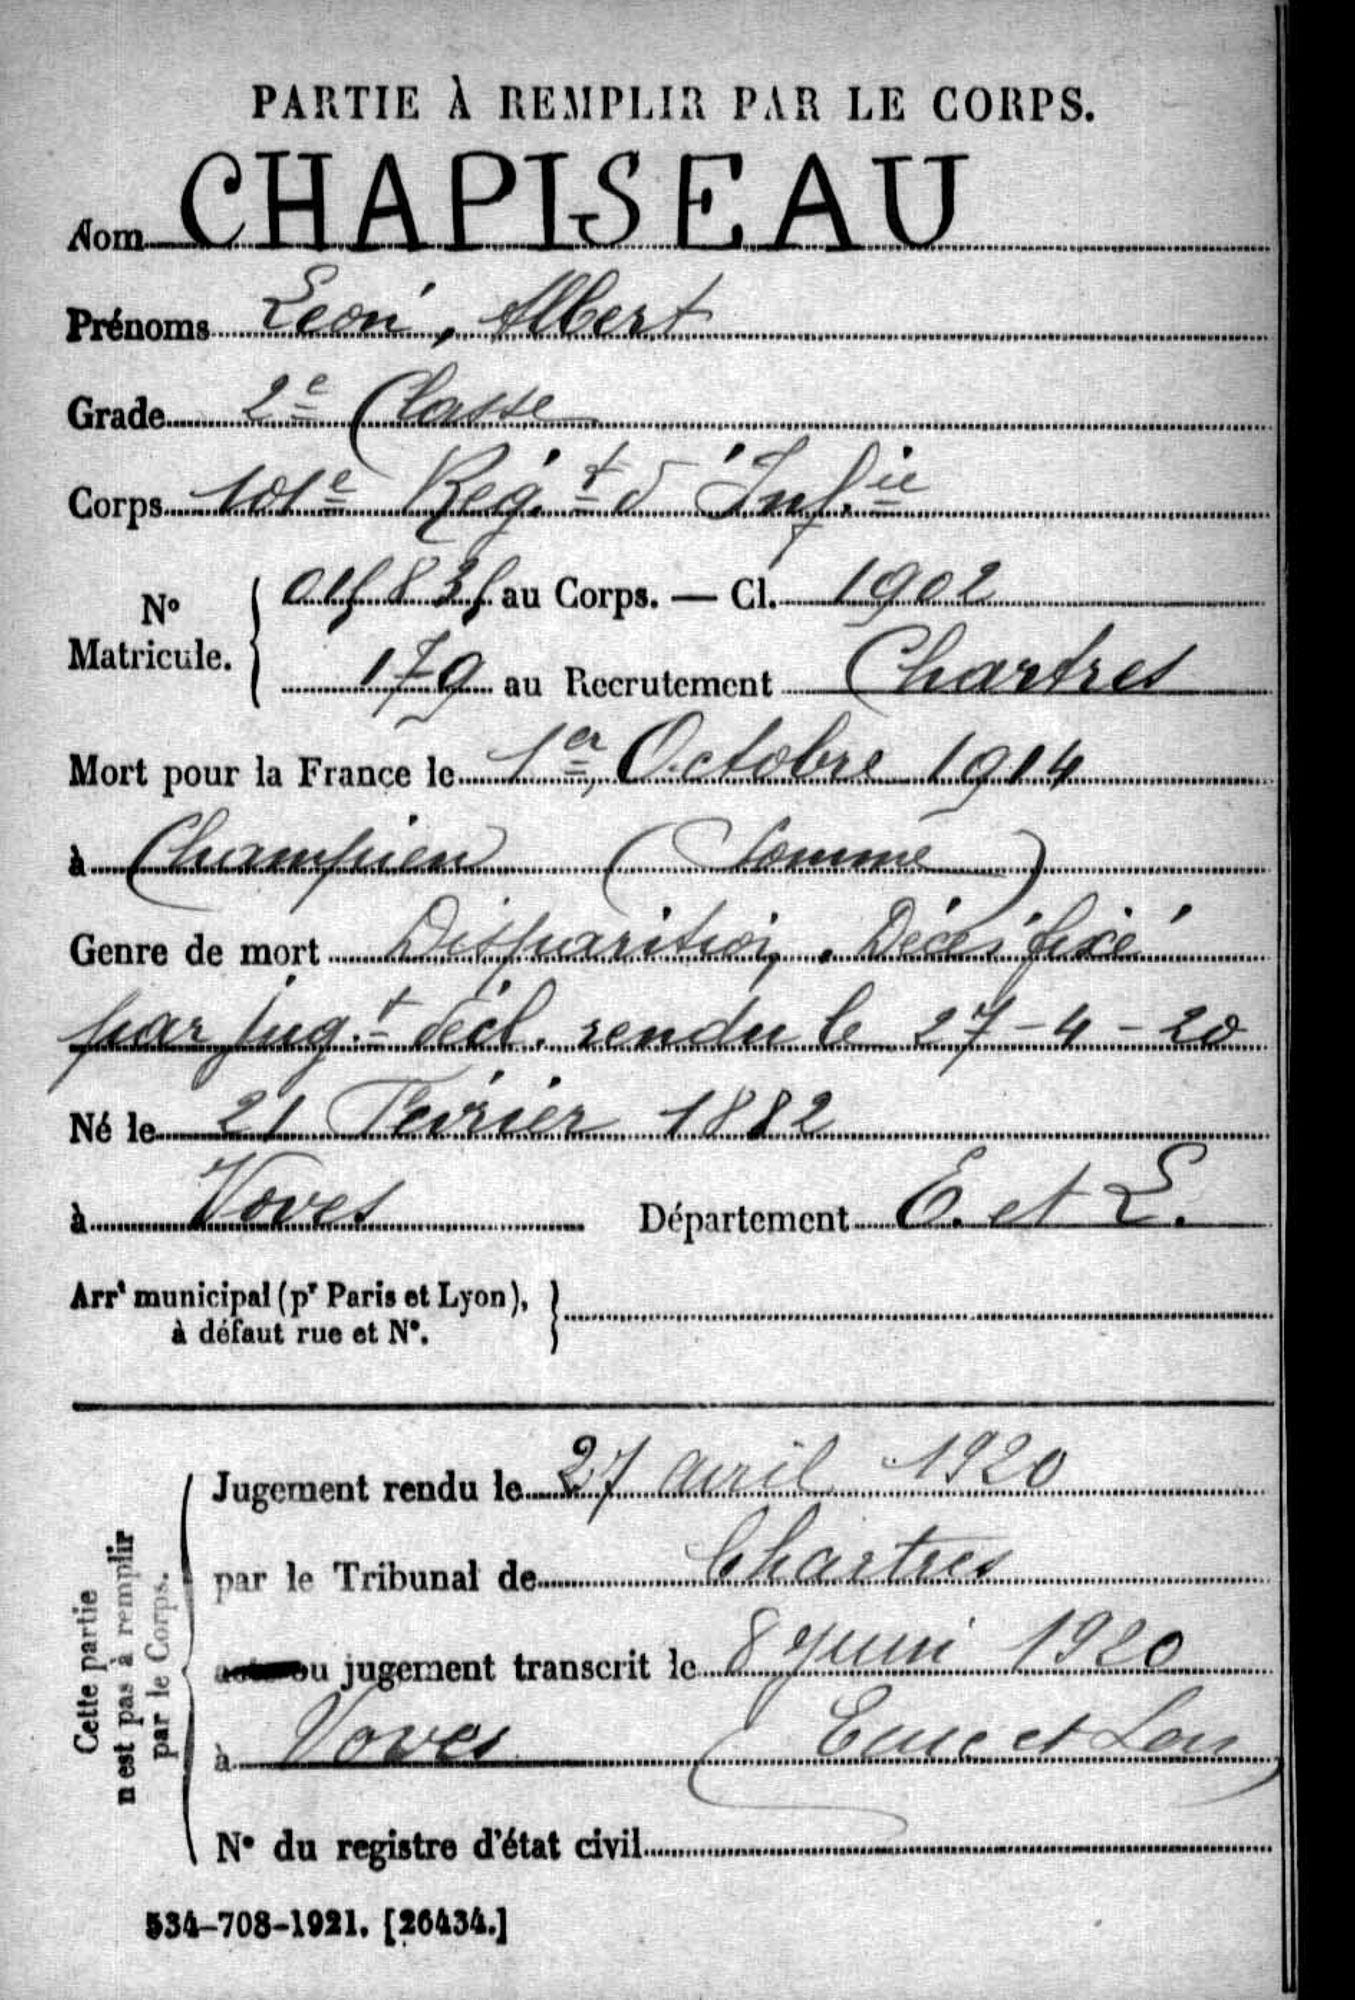 PARTIE À REMPLIR PAR LE CORPS.
Nom CHAPISEAU
Prénoms Léon, Albert
Grade 2e Classe
Corps 101e Rég.t d'Inf.ie
N° Matricule. { 015835 au Corps. — Cl. 1902
179 au Recrutement Chartres
Mort pour la France le 1er Octobre 1914
à Champien (Somme)
Genre de mort Disparition. Décès fixé
par jug.t décl. rendu le 27-4-20
Né le 21 Février 1882
à Voves Département E. et L.
Arrt municipal (pr Paris et Lyon), }
à défaut rue et N°.
Cette partie
n'est pas à remplir
par le Corps.
Jugement rendu le 27 avril 1920
par le Tribunal de Chartres
acte ou jugement transcrit le 8 juin 1920
à Voves (Eure et Loir)
N° du registre d'état civil
534-708-1921. [26434.]